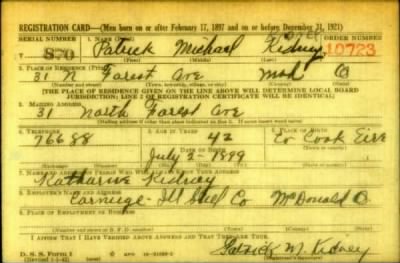 REGISTRATION CARD—(Men born on or after February 17, 1897 and on or before December 31, 1921)
SERIAL NUMBER 1. NAME (Print) ORDER NUMBER
570 Patrick Michael Kidney 10723
(First) (Middle) (Last)
2. PLACE OF RESIDENCE (Print)
31 N Forest Ave O
(Number and street) (Town, township, village, or city) (County) (State)
[THE PLACE OF RESIDENCE GIVEN ON THE LINE ABOVE WILL DETERMINE LOCAL BOARD
JURISDICTION; LINE 2 OF REGISTRATION CERTIFICATE WILL BE IDENTICAL]
3. MAILING ADDRESS
31 North Forest Ave
[Mailing address if other than place indicated on line 2. If same insert word same]
4. TELEPHONE 5. AGE IN YEARS 6. PLACE OF BIRTH
76688 42 Co Cook Eire
DATE OF BIRTH
July 2 - 1899
(Exchange) (Number) (Mo.) (Day) (Yr.) (State or country)
7. NAME AND ADDRESS OF PERSON WHO WILL ALWAYS KNOW YOUR ADDRESS
Katharine Kidney
8. EMPLOYER'S NAME AND ADDRESS
Carnegie-Ill Steel Co McDonald O.
9. PLACE OF EMPLOYMENT OR BUSINESS
(Number and street or R. F. D. number) (Town) (County) (State)
I AFFIRM THAT I HAVE VERIFIED ABOVE ANSWERS AND THAT THEY ARE TRUE.
D. S. S. Form 1
Patrick M. Kidney